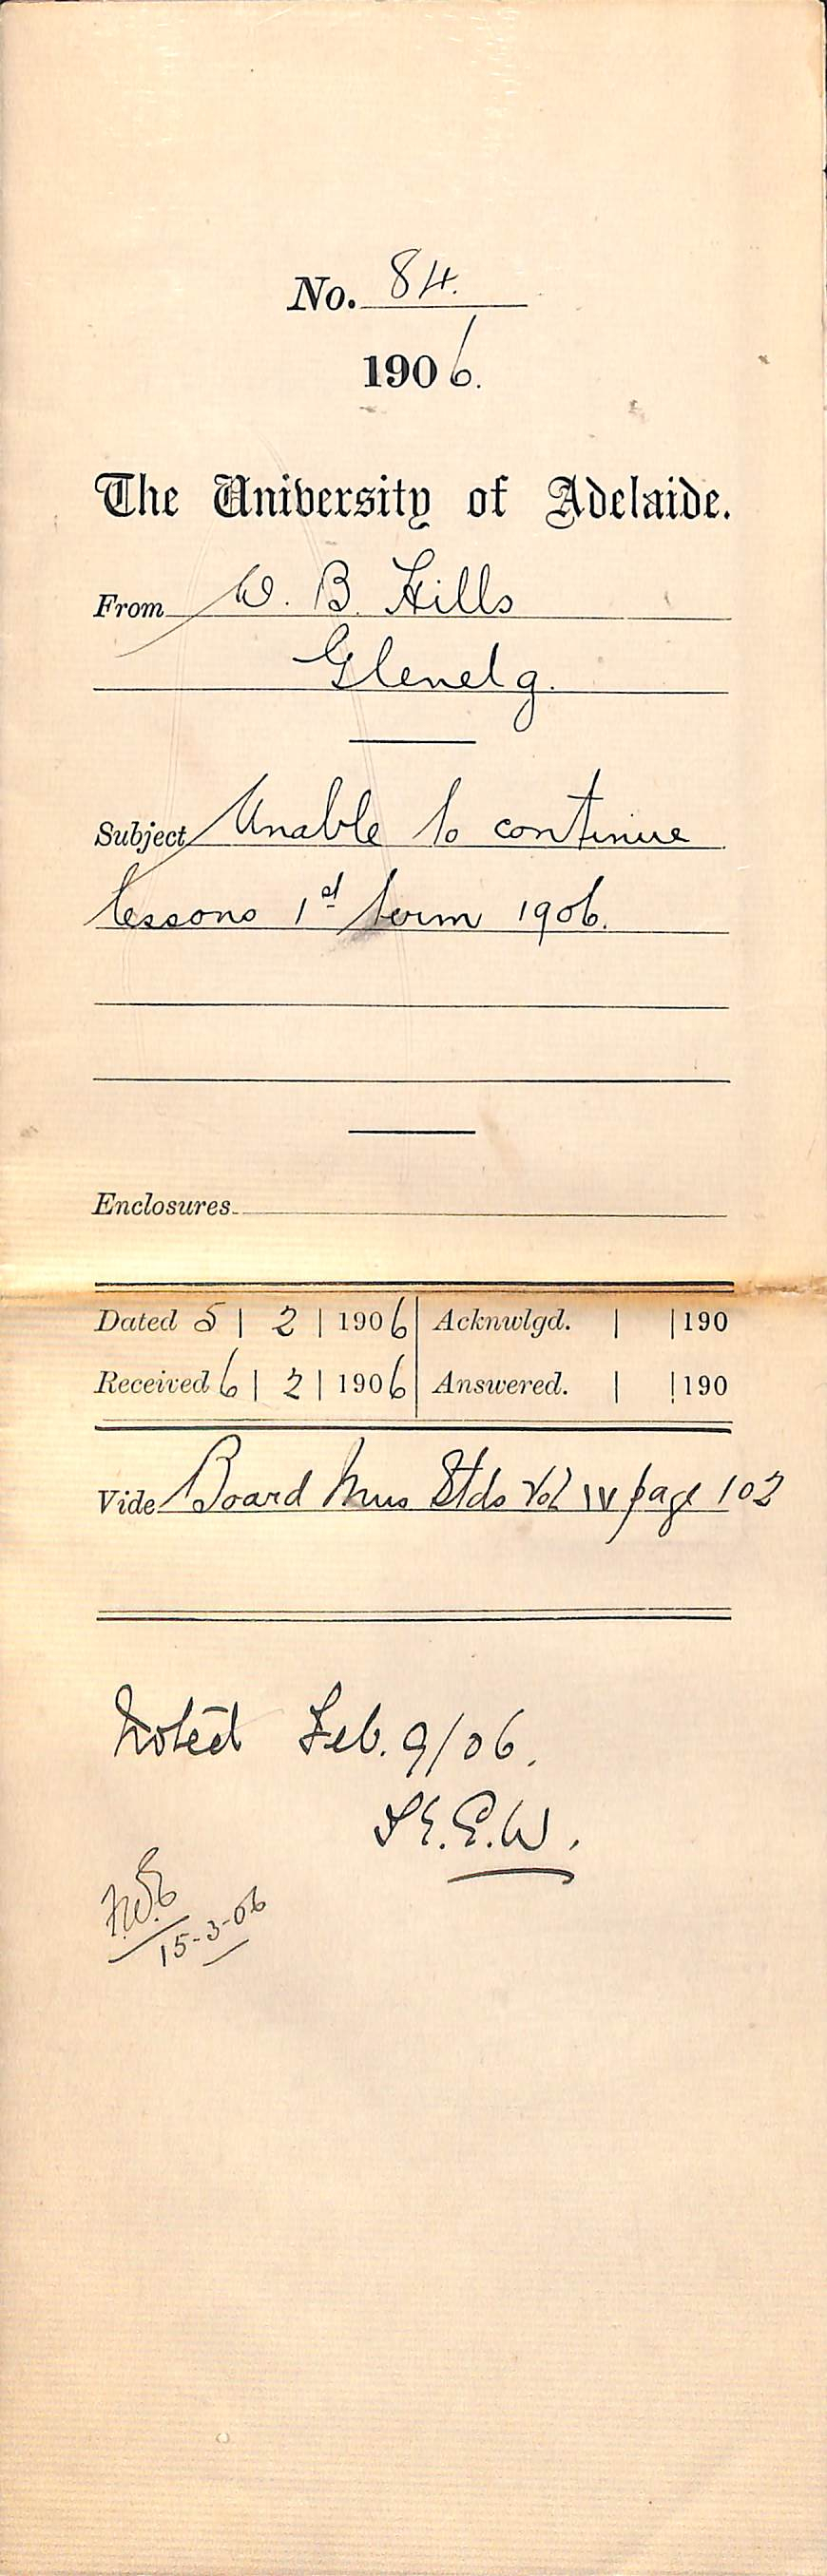 No. 84.
1906.
The University of Adelaide.
From W. B. Hills
Glenelg.
Subject Unable to continue
lessons 1st term 1906.
Enclosures
Dated 5 | 2 | 1906 Acknwlgd. | | 190
Received 6 | 2 | 1906 Answered. | | 190
Vide Board Mus Stds Vol IV page 102
Noted Feb. 9/06.
15-3-06